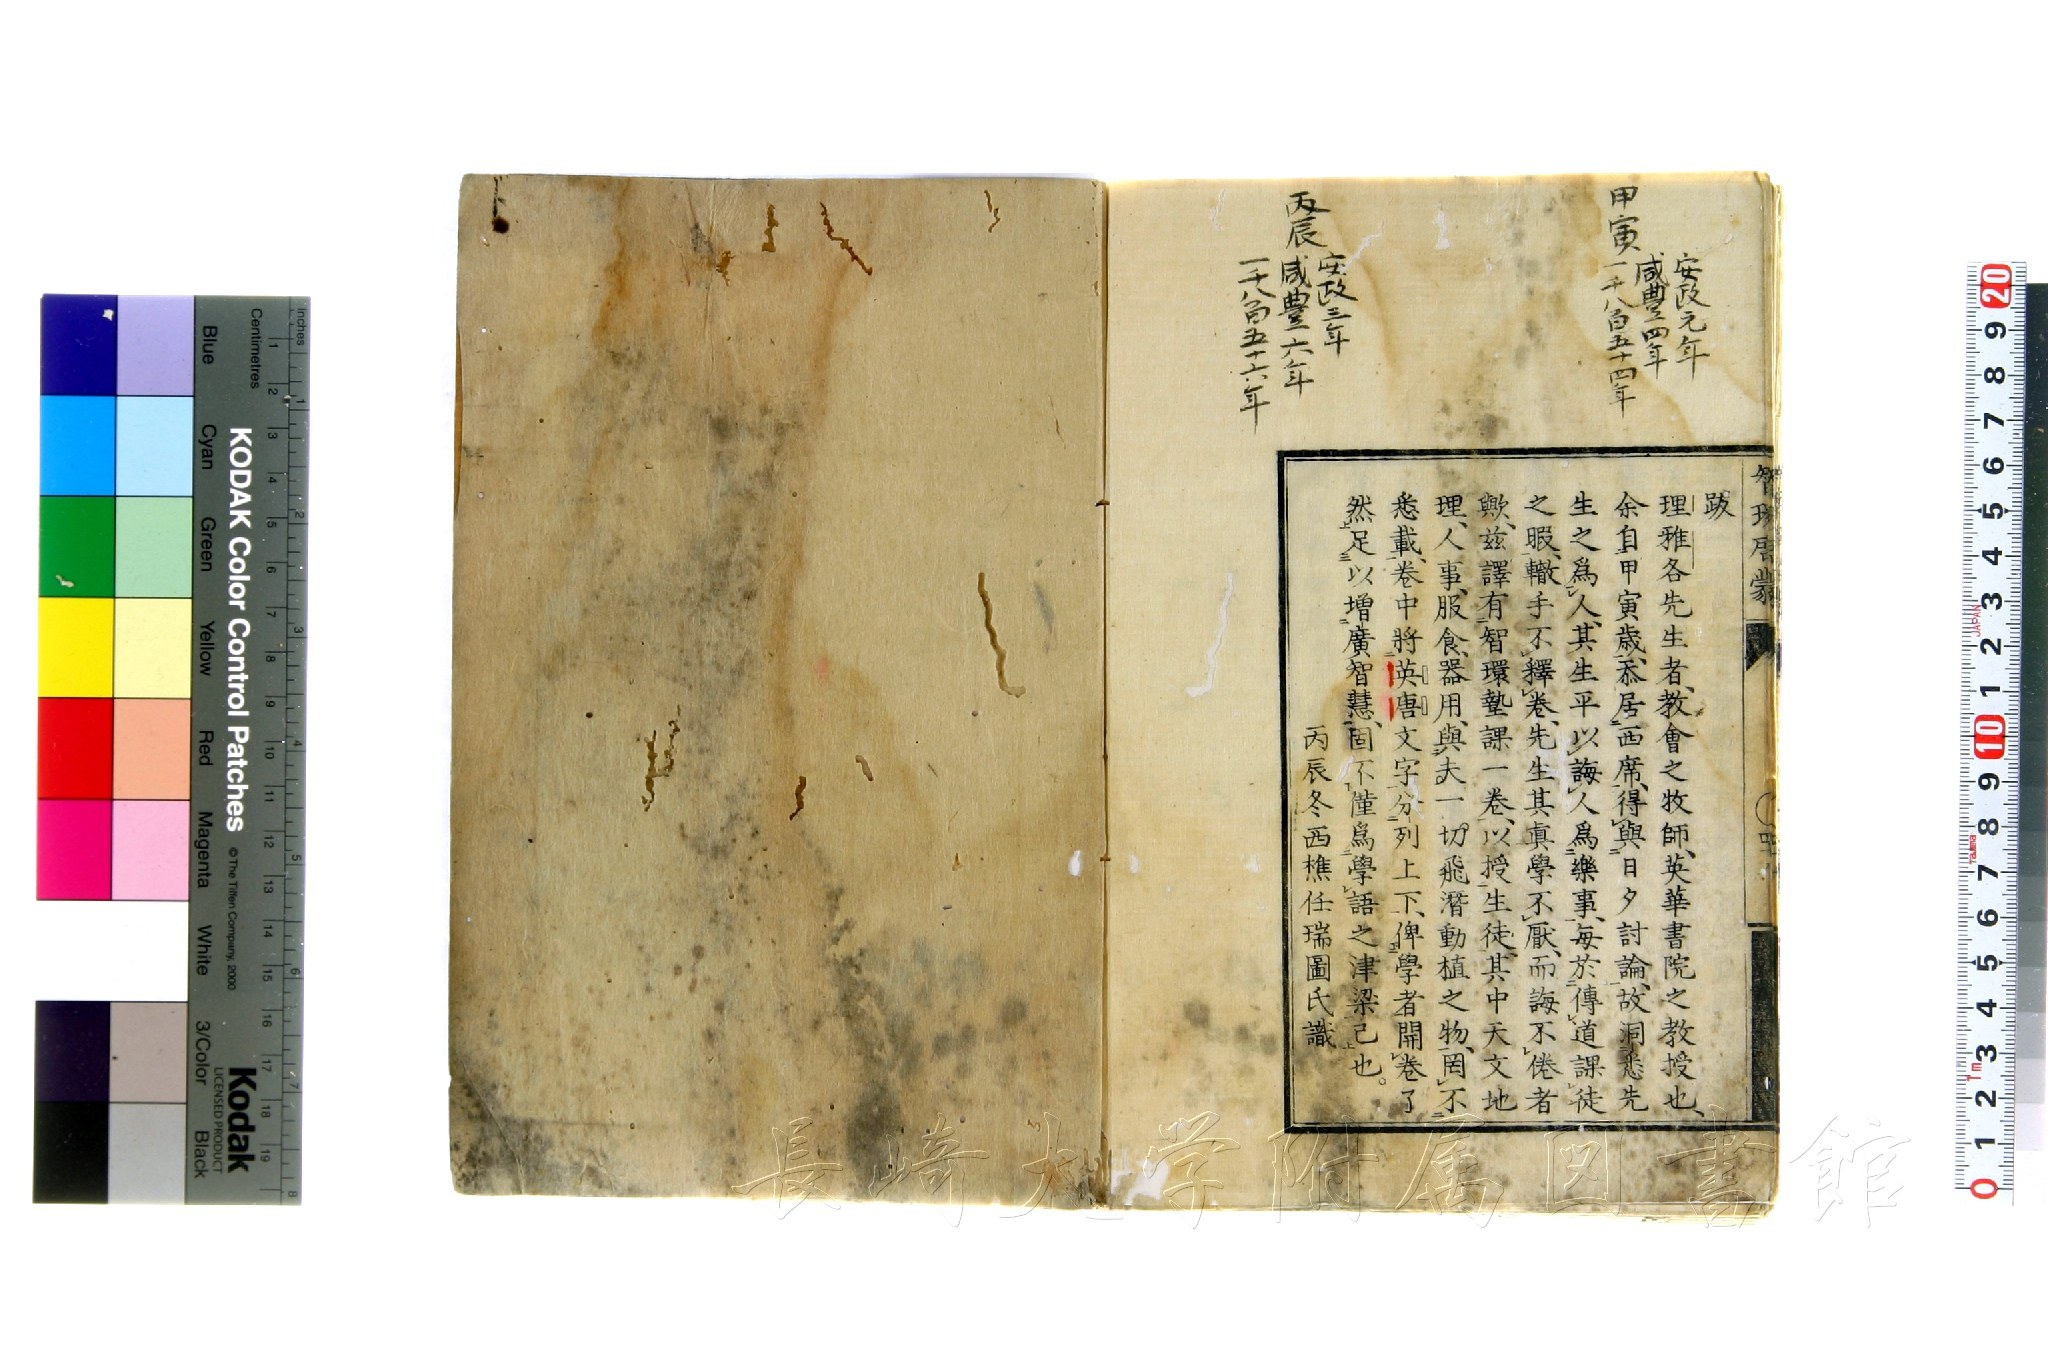 甲寅
安政元年
咸豊四年
一千八百五十四年
丙辰
安政三年
咸豊六年
一千八百五十六年
跋
理雅各先生者、教會之牧師、英華書院之教授也、
余自甲寅歲、忝居西席、得與日夕討論、故洞悉先
生之爲人、其生平以誨人爲樂事、每於傳道課徒
之暇、轍手不釋卷、先生其眞學不厭、而誨不倦者
歟、兹譯有智環塾課一卷、以授生徒、其中天文地
理、人事、服食、器用、與夫一切飛潛動植之物、罔不
悉載、卷中將英唐文字分列上下、俾學者開卷了
然足以增廣智慧、固不僅爲學語之津梁己也。
丙辰冬西樵任瑞圖氏識
智環啓蒙
長崎大学附属図書館
Inches
Centimetres
Blue
Cyan
Green
Yellow
Red
Magenta
White
3/Color
Black
KODAK Color Control Patches
© The Tiffen Company, 2000
Kodak
LICENSED PRODUCT
1 2 3 4 5 6 7 8
1 2 3 4 5 6 7 8 9 10 11 12 13 14 15 16 17 18 19
20 9 8 7 6 5 4 3 2 1 10 9 8 7 6 5 4 3 2 1 0
JAPAN
Tajima